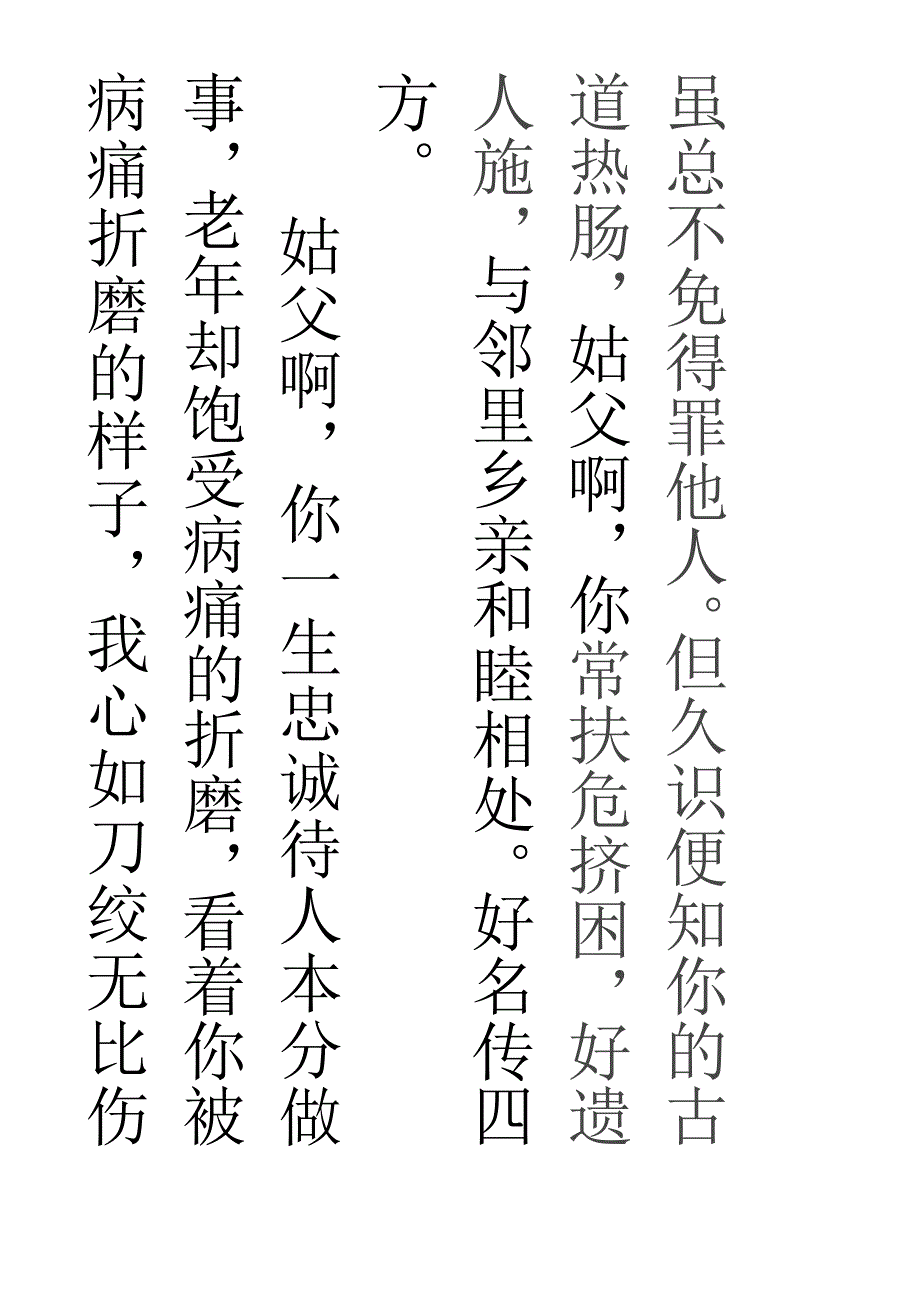 虽总不免得罪他人。但久识便知你的古
道热肠，姑父啊，你常扶危挤困，好遗
人施，与邻里乡亲和睦相处。好名传四
方。
姑父啊，你一生忠诚待人本分做
事，老年却饱受病痛的折磨，看着你被
病痛折磨的样子，我心如刀绞无比伤